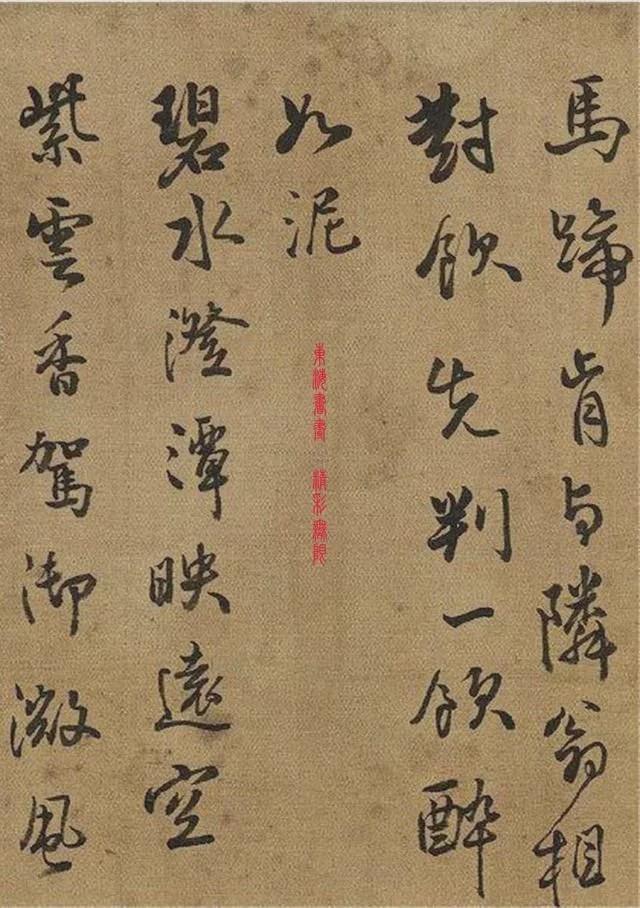 馬蹄肯与隣翁相
對飲先判一飲醉
如泥
東海書畫 精彩無限
碧水澄潭映遠空
紫雲香駕御微風